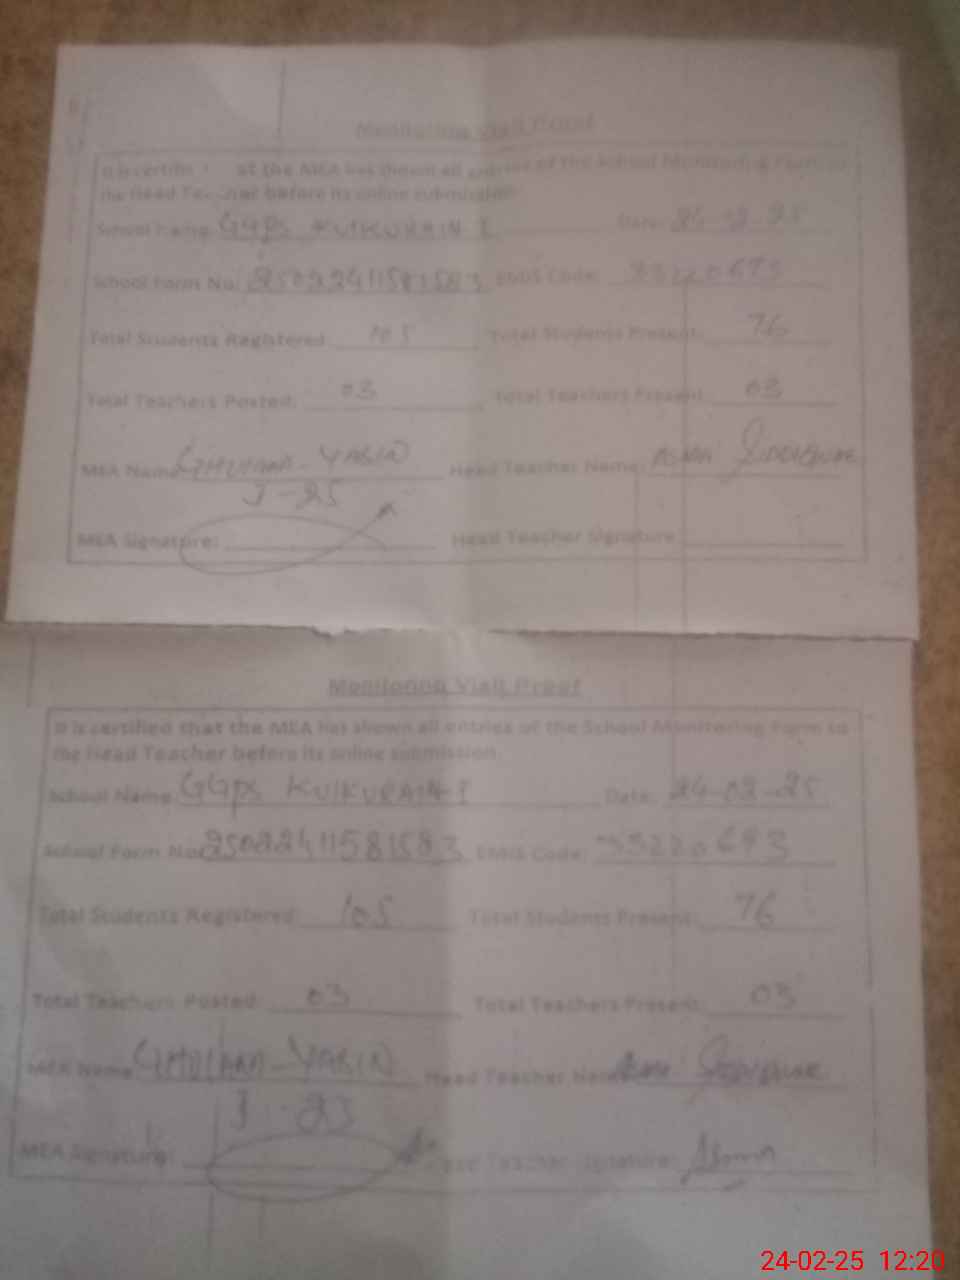 Monitoring Visit Proof
It is certifi at the MEA has shown all entries of the School Monitoring Form to
the Head Teacher before its online submission.
School Name: GGPS KULKURAIN-I Date: 24-02-25
School Form No: 25022411581583 EMIS Code:
Total Students Registered: 105 Total Students Present: 76
Total Teachers Posted: 03 Total Teachers Present: 03
MEA Name: YASIN Head Teacher Name: ASMA
MEA Signature: Head Teacher Signature:
Monitoring Visit Proof
It is certified that the MEA has shown all entries of the School Monitoring Form to
the Head Teacher before its online submission.
School Name: GGPS KULKURAIN-I Date: 24-02-25
School Form No: 25022411581583 EMIS Code:
Total Students Registered: 105 Total Students Present: 76
Total Teachers Posted: 03 Total Teachers Present: 03
MEA Name: YASIN Head Teacher Name:
MEA Signature: Teacher Signature: Asma
24-02-25 12:20